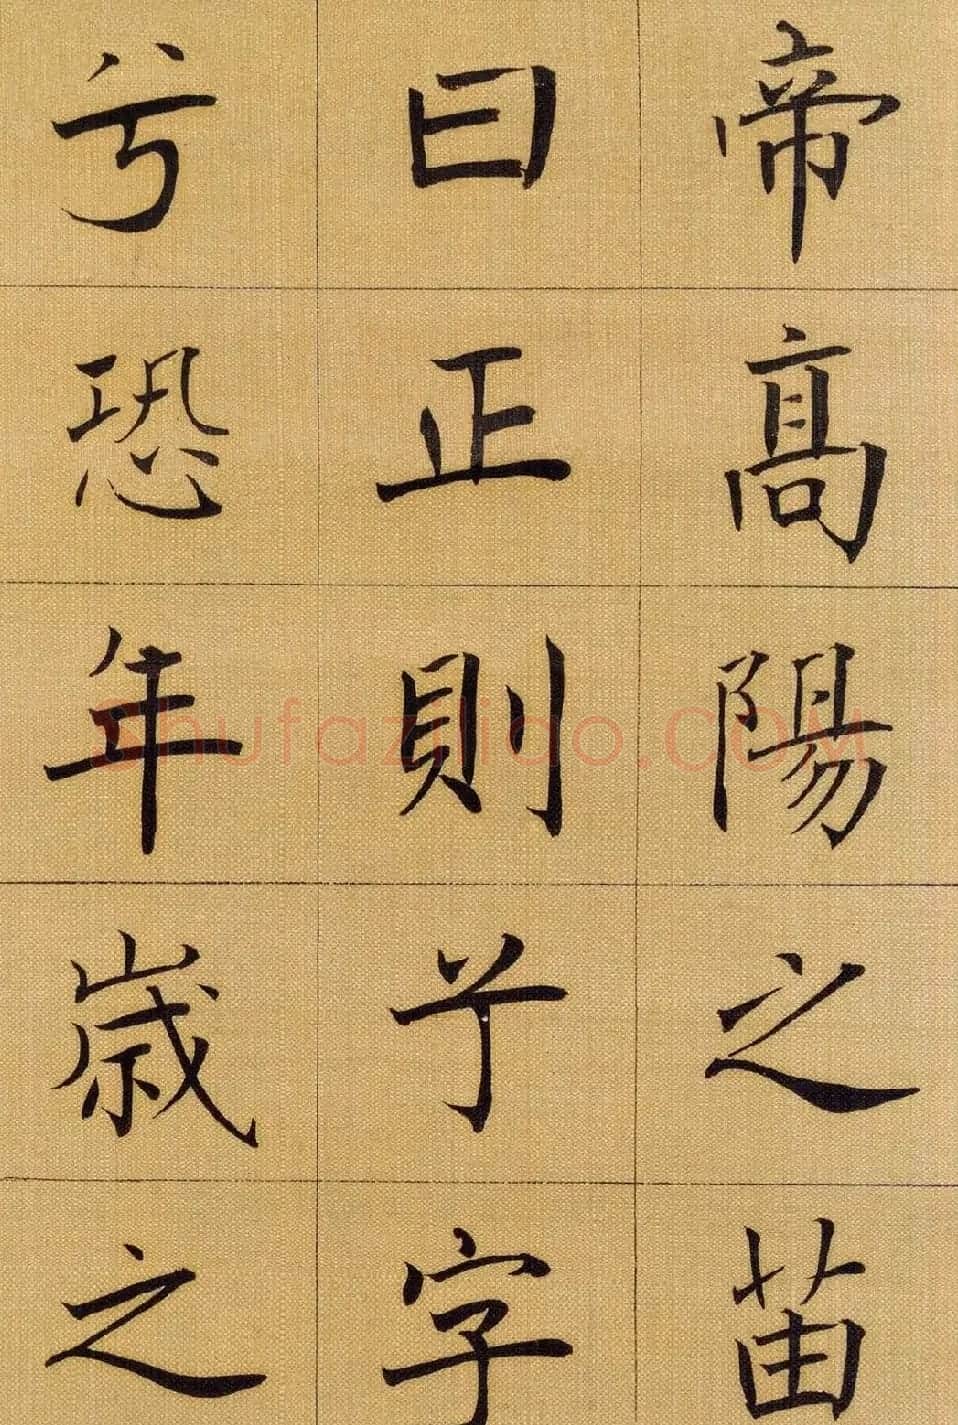 帝高陽之苗
曰正則兮字
兮恐年歲之
Shufaziliao.COM